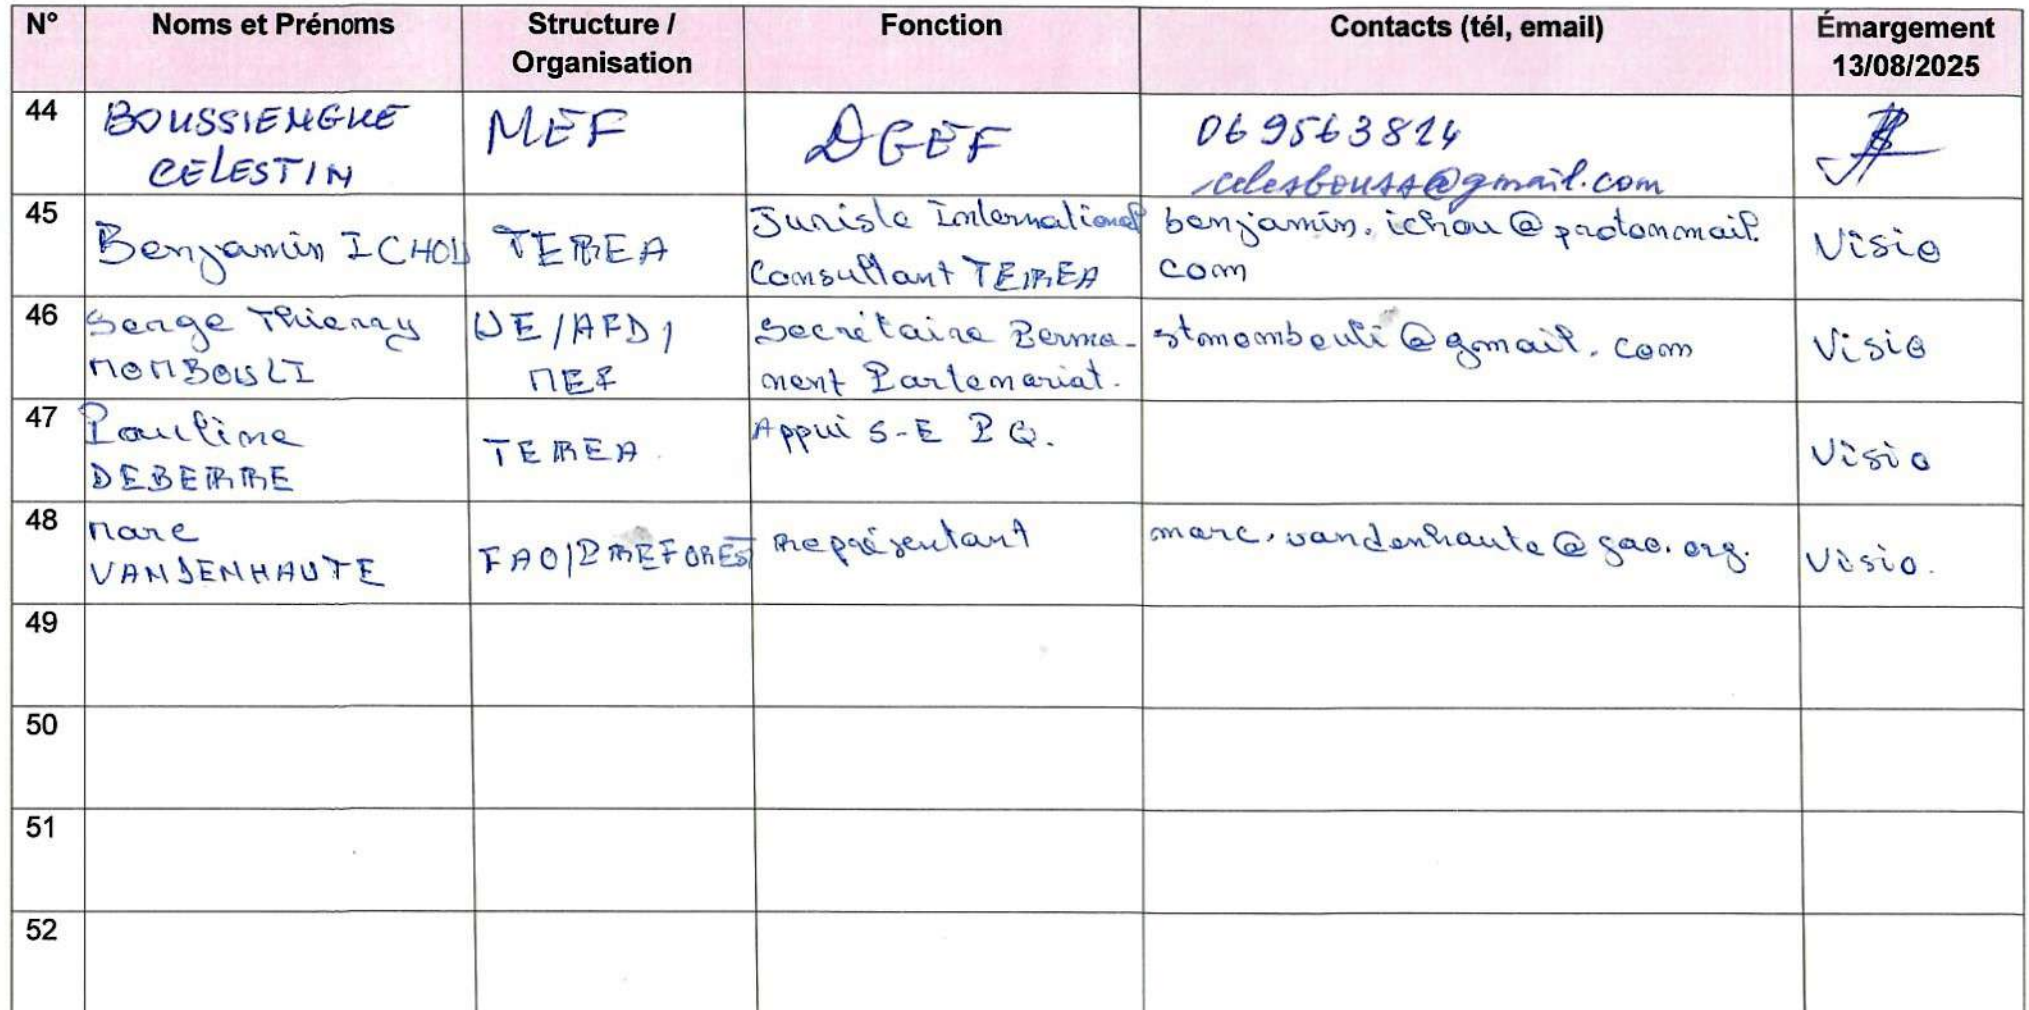 N° Noms et Prénoms Structure / Organisation Fonction Contacts (tél, email) Émargement 13/08/2025
44 BOUSSIENGUE CELESTIN MEF DGEF 069563824 celesbouss@gmail.com
45 Benjamin ICHOU TEREA Juriste International Consultant TEREA benjamin.ichou@protonmail.com Visio
46 Serge Thierry MOMBOULI UE/AFD, MEF Secrétaire Permanent Partenariat. stmombouli@gmail.com Visio
47 Pauline DEBERRE TEREA Appui S-E P Q. Visio
48 Marc VANDENHAUTE FAO/PREFOREST Représentant marc.vandenhaute@fao.org. Visio.
49
50
51
52